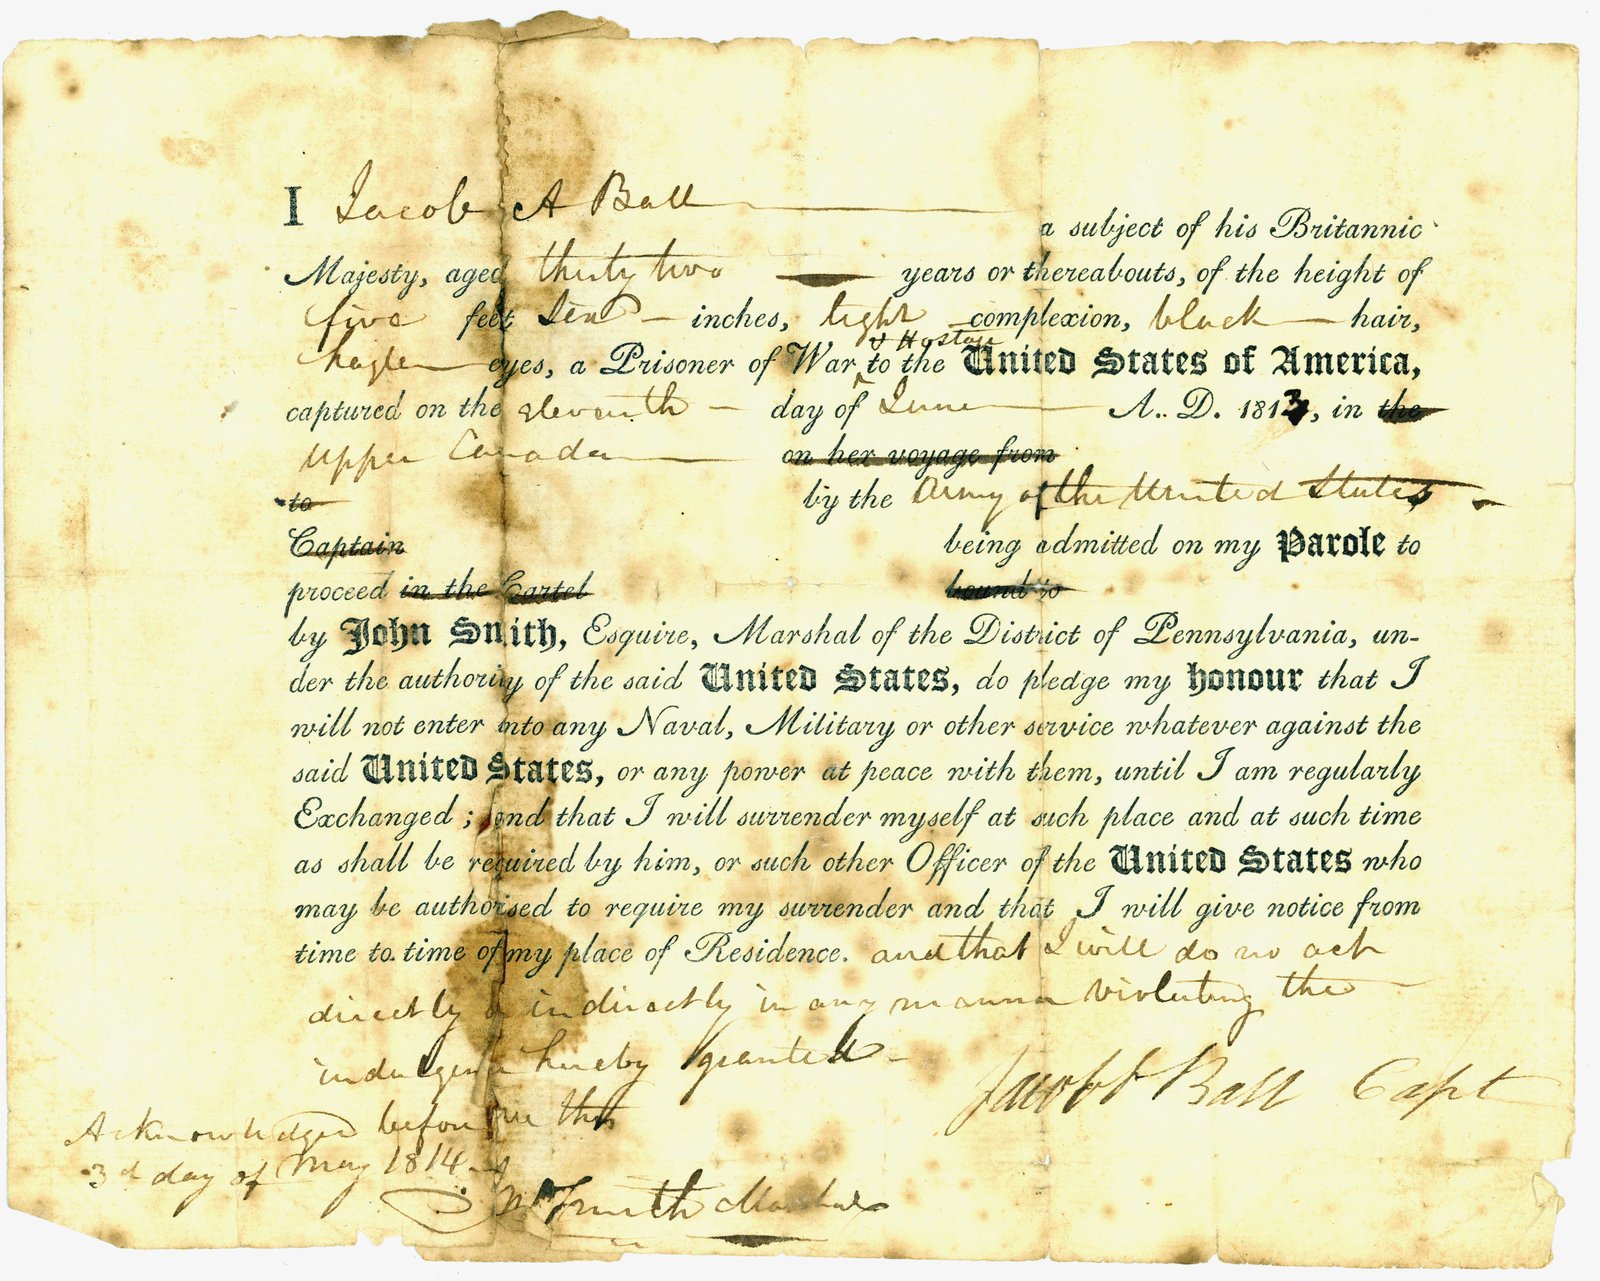 I Jacob A Ball a subject of his Britannic
Majesty, aged thirty two years or thereabouts, of the height of
five feet Ten inches, light complexion, black hair,
& Hostage
hazle eyes, a Prisoner of War to the United States of America,
captured on the eleventh day of June A. D. 1813, in the
Upper Canada on her voyage from
to by the Army of the United States
Captain being admitted on my Parole to
proceed in the Cartel bound to
by John Smith, Esquire, Marshal of the District of Pennsylvania, un-
der the authority of the said United States, do pledge my honour that I
will not enter into any Naval, Military or other service whatever against the
said United States, or any power at peace with them, until I am regularly
Exchanged; and that I will surrender myself at such place and at such time
as shall be required by him, or such other Officer of the United States who
may be authorised to require my surrender and that I will give notice from
time to time of my place of Residence. and that I will do no act
directly or indirectly in any manner violating the
indulgence hereby granted
Jacob A Ball Capt
Acknowledged before me this
3d day of May 1814
Smith Marshal